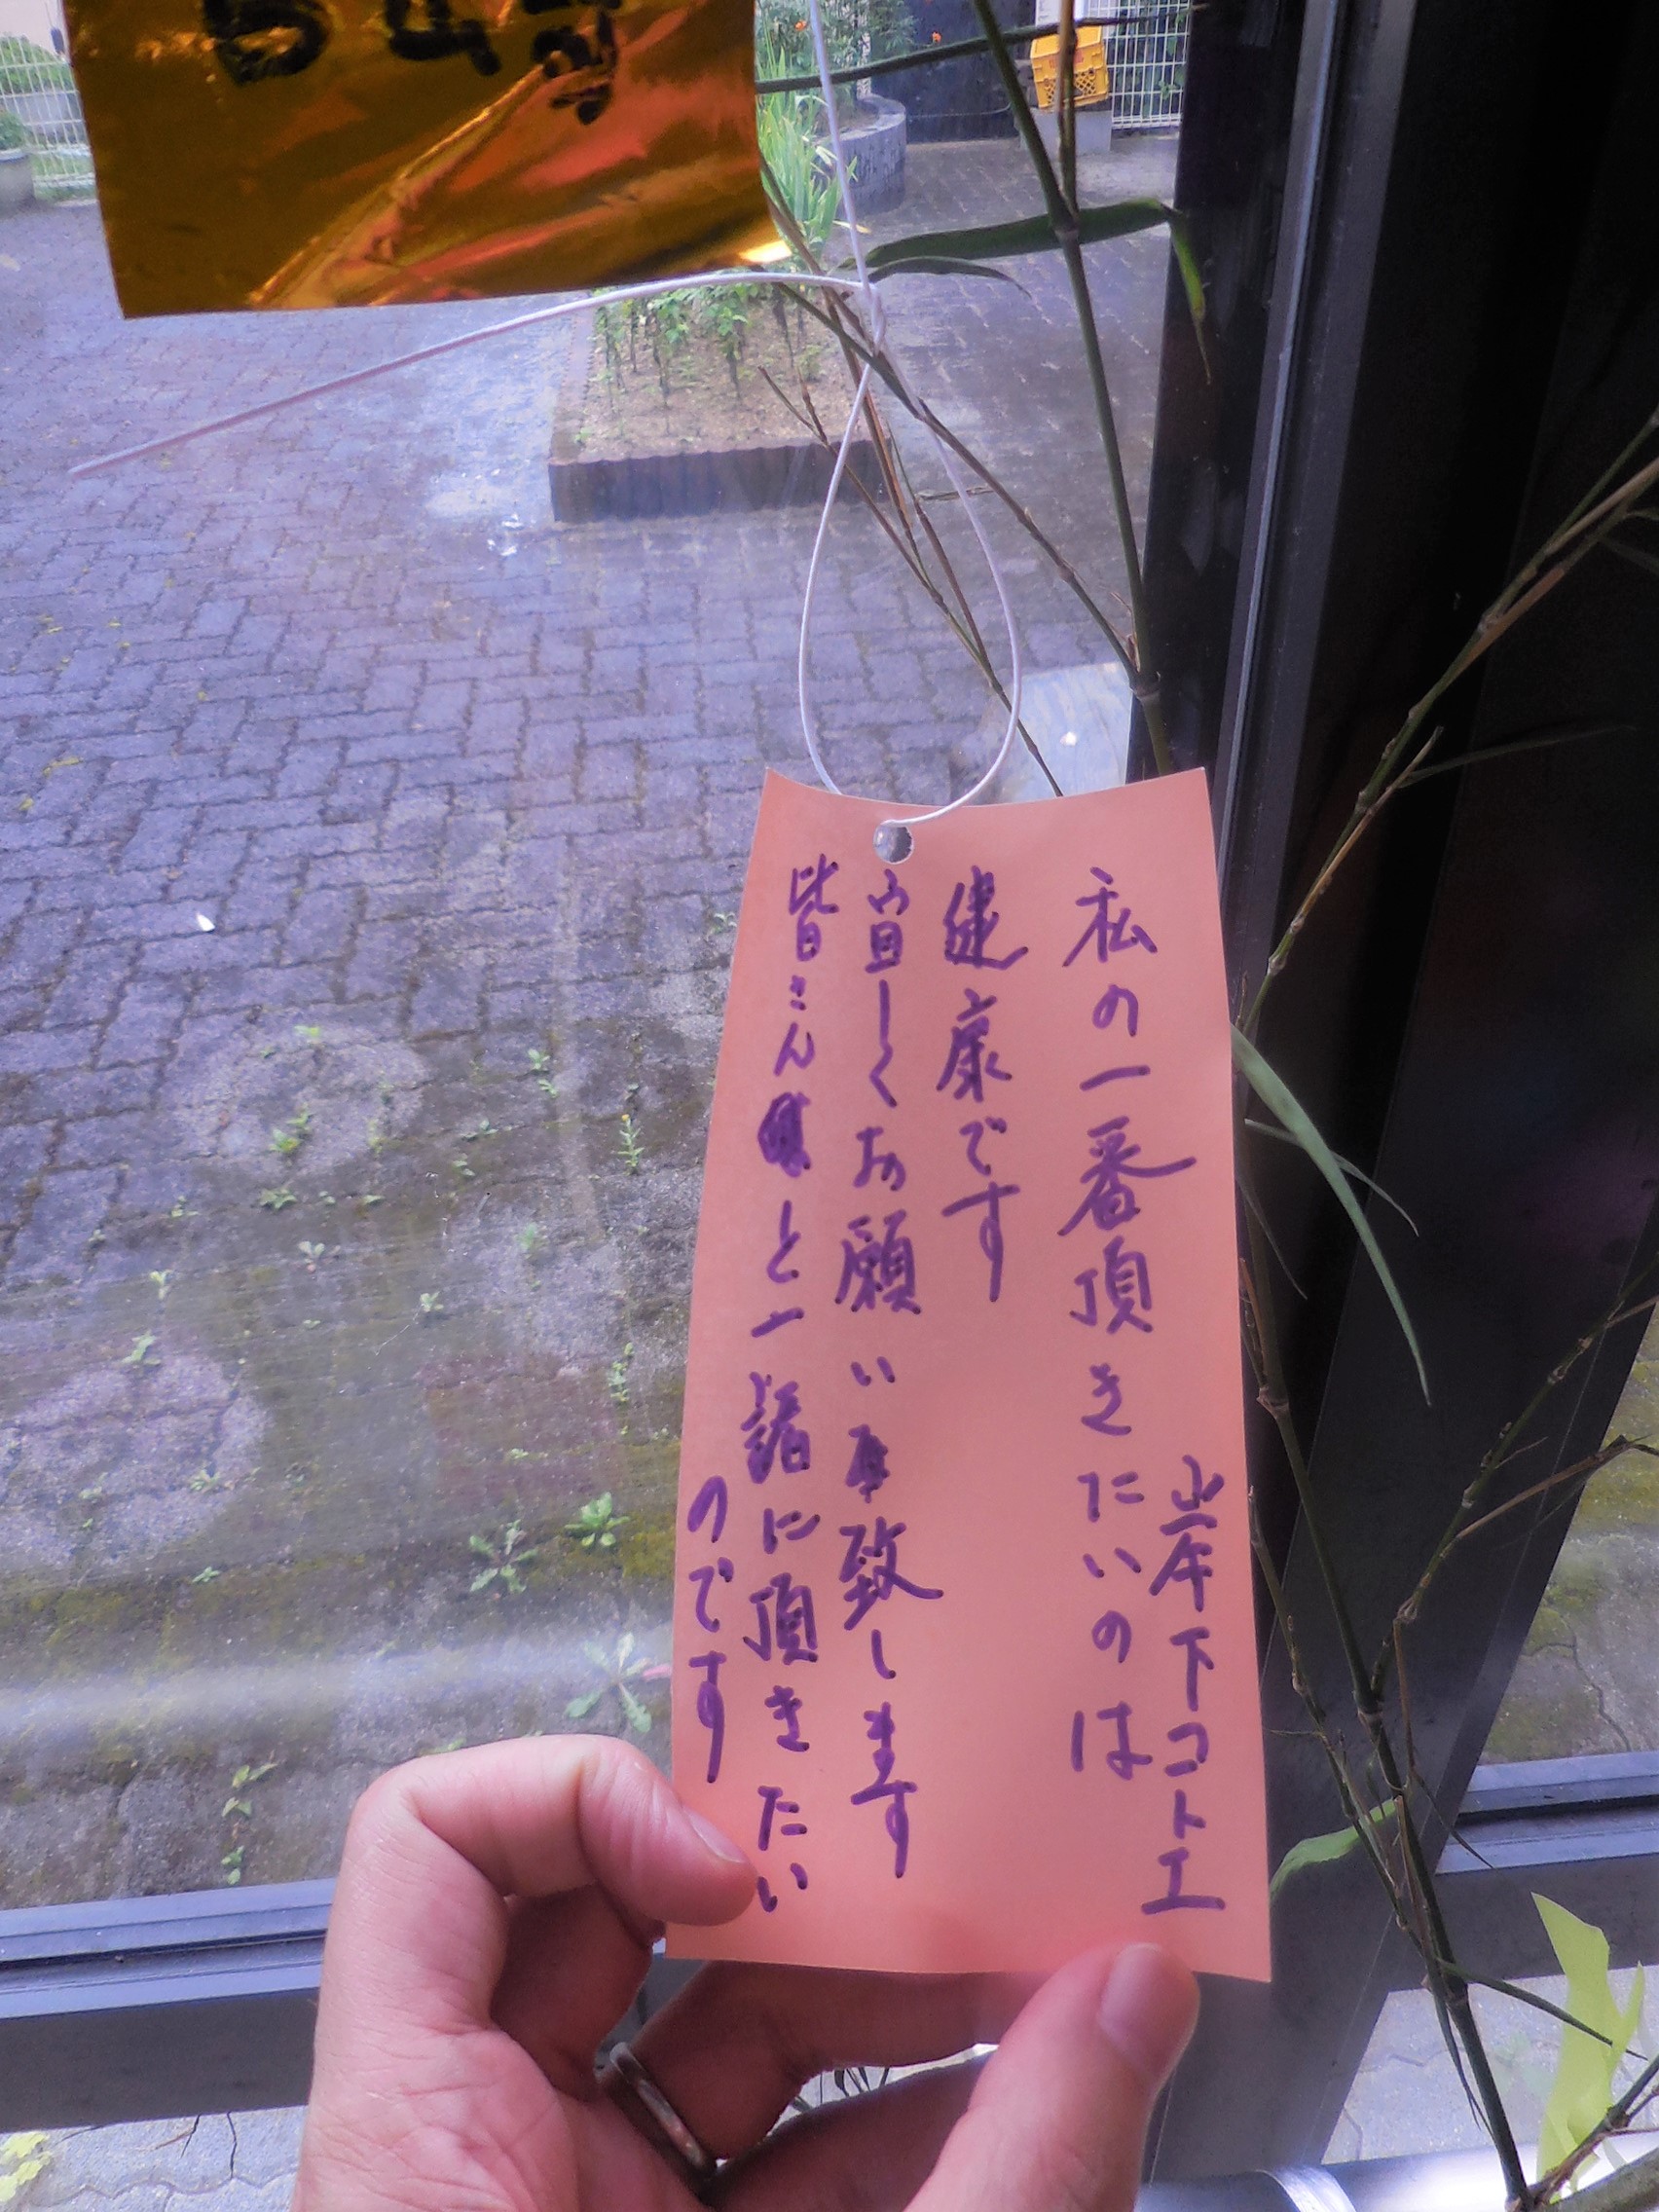 岸下コトエ
私の一番頂きたいのは
健康です
宜しくお願い致します
皆さんと一緒に頂きたい
のです